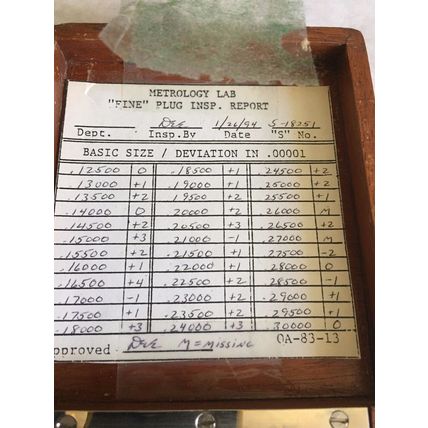 METROLOGY LAB
"FINE" PLUG INSP. REPORT
DEE 1/26/94 S-18251
Dept. Insp.By Date "S" No.
BASIC SIZE / DEVIATION IN .00001
.12500 0 .18500 +1 .24500 +2
.13000 +1 .19000 +1 .25000 +2
.13500 +2 .19500 +2 .25500 +1
.14000 0 .20000 +2 .26000 M
.14500 +2 .20500 +3 .26500 +2
.15000 +3 .21000 -1 .27000 M
.15500 +2 .21500 +1 .27500 -2
.16000 +1 .22000 +1 .28000 0
.16500 +4 .22500 +2 .28500 -1
.17000 -1 .23000 +2 .29000 +1
.17500 +1 .23500 +2 .29500 +1
.18000 +3 .24000 +3 .30000 0
pproved DEE M=MISSING OA-83-13